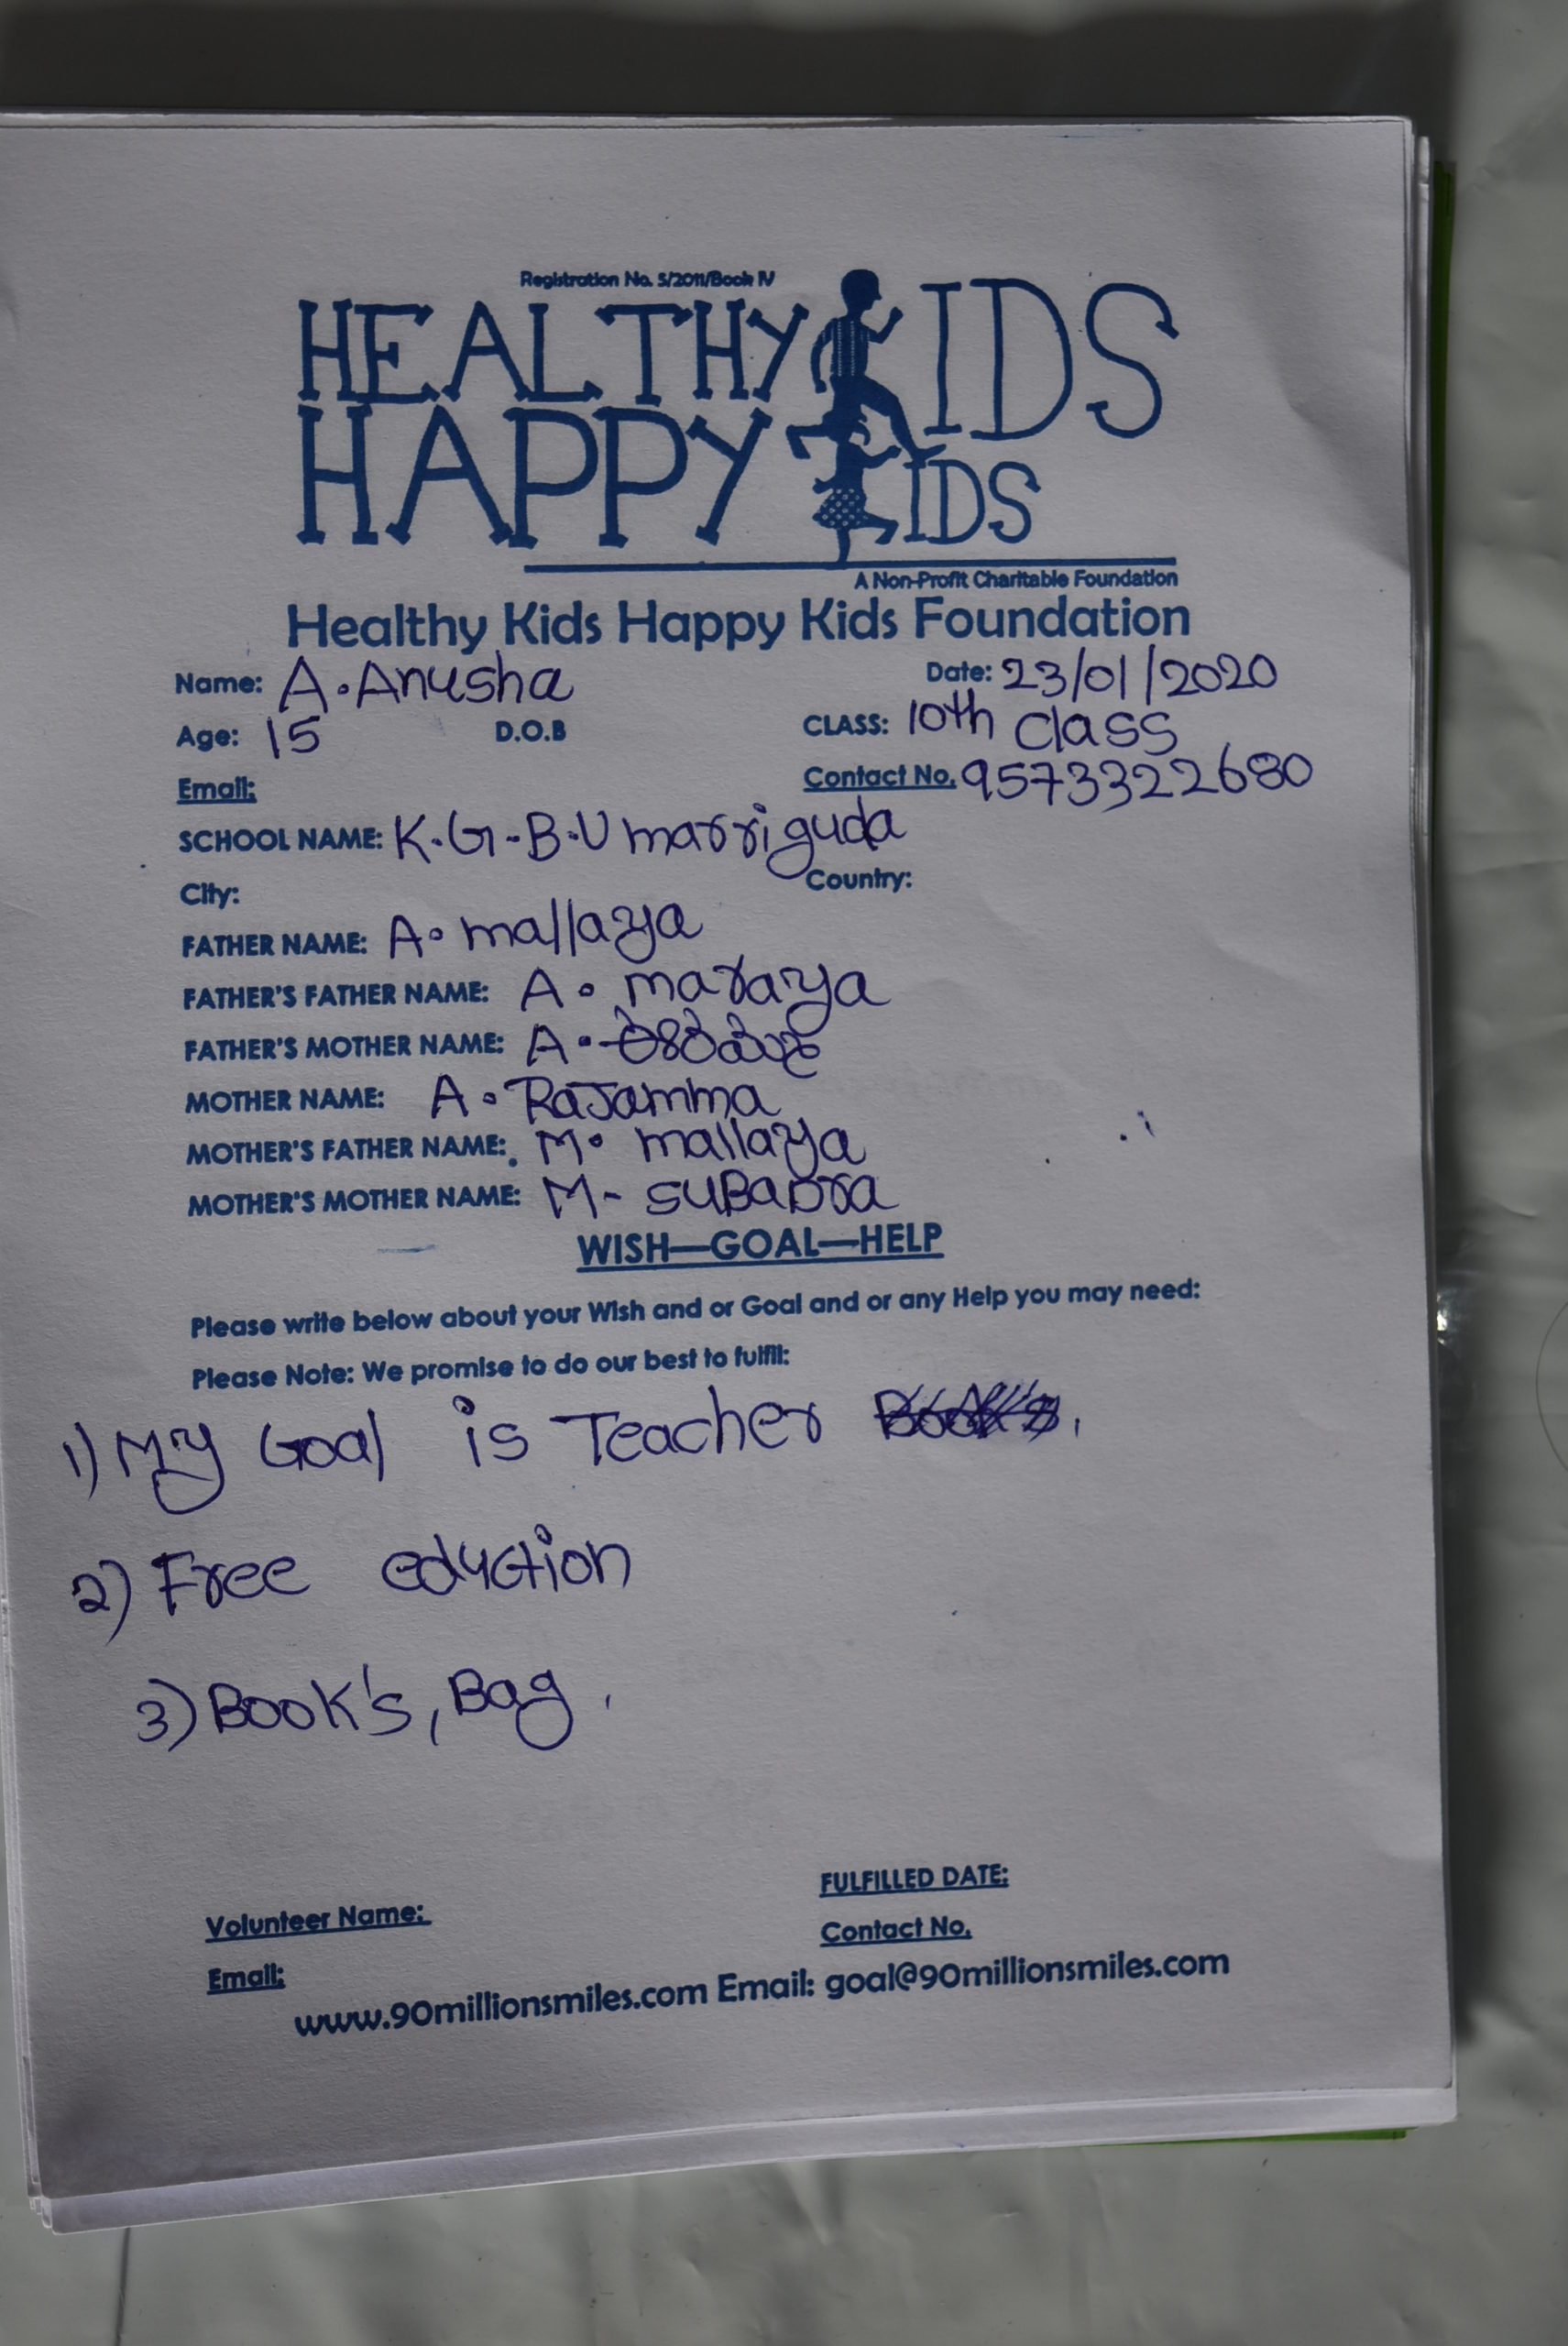 Registration No. 5/2011/Book IV
HEALTHY KIDS
HAPPY KIDS
A Non-Profit Charitable Foundation
Healthy Kids Happy Kids Foundation
Name: A. Anusha Date: 23/01/2020
Age: 15 D.O.B CLASS: 10th Class
Email: Contact No. 9573322680
SCHOOL NAME: K.G.B.V marriguda
City: Country:
FATHER NAME: A. mallaya
FATHER'S FATHER NAME: A. maraya
FATHER'S MOTHER NAME: A.
MOTHER NAME: A. RaJamma
MOTHER'S FATHER NAME: M. mallaya
MOTHER'S MOTHER NAME: M- suBaDra
WISH—GOAL—HELP
Please write below about your Wish and or Goal and or any Help you may need:
Please Note: We promise to do our best to fulfil:
1) My Goal is Teacher
2) Free eduction
3) Book's, Bag.
FULFILLED DATE:
Volunteer Name: Contact No.
Email:
www.90millionsmiles.com Email: goal@90millionsmiles.com